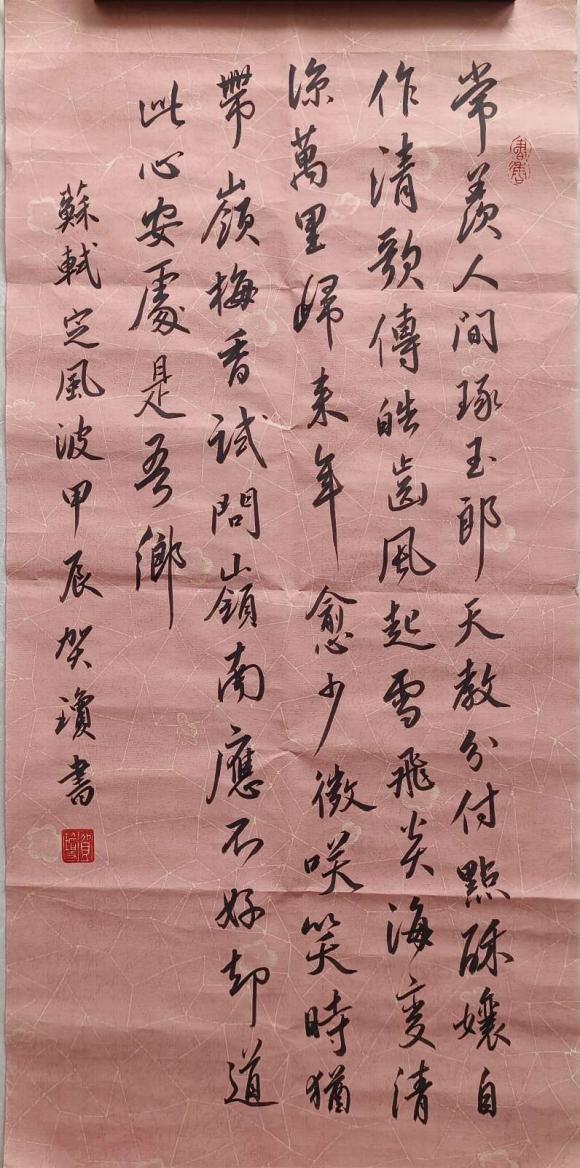 常羨人間琢玉郎天教分付點酥孃自
作清歌傳皓齒風起雪飛炎海變清
涼萬里歸来年愈少微咲笑時猶
帶嶺梅香試問嶺南應不好却道
此心安處是吾鄉
蘇軾定風波甲辰賀瓊書